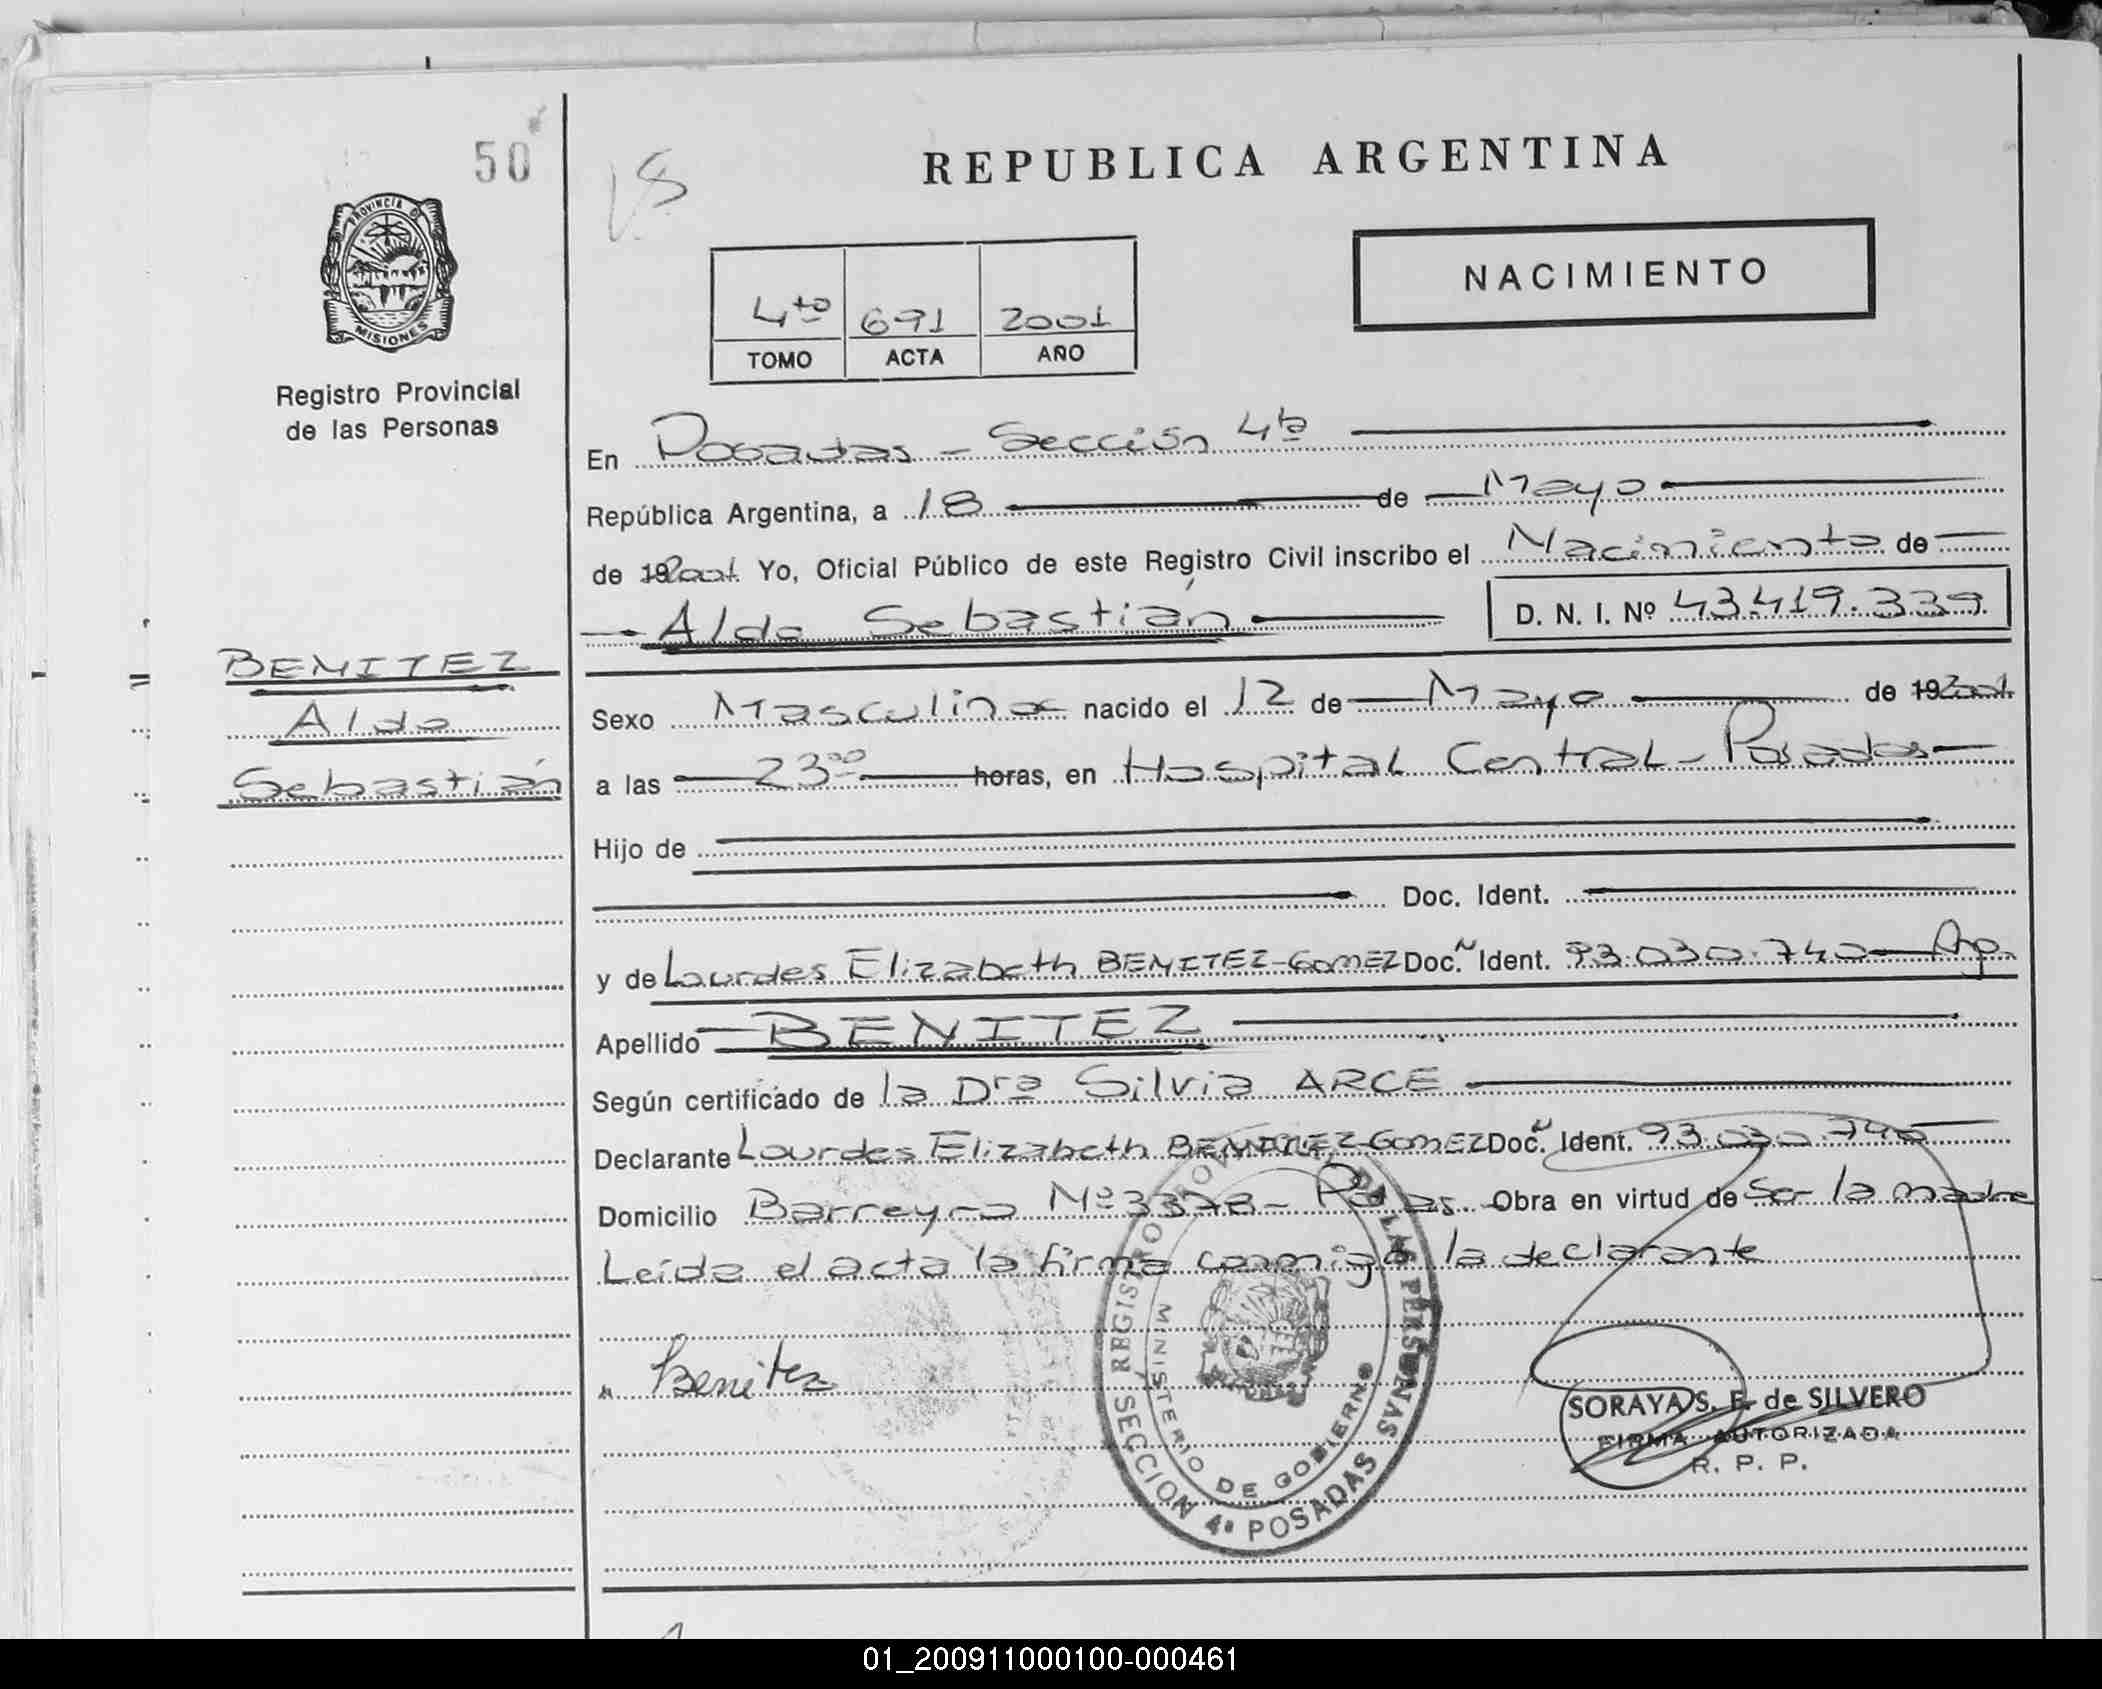 50
18
REPUBLICA ARGENTINA
PROVINCIA DE
MISIONES
Registro Provincial
de las Personas
NACIMIENTO
4to 691 2001
TOMO ACTA AÑO
En Posadas - Sección 4ta
República Argentina, a 18 de Mayo
de 192001 Yo, Oficial Público de este Registro Civil inscribo el Nacimiento de
Aldo Sebastián D. N. I. Nº 43.419.339
BENITEZ
Aldo
Sebastián
Sexo Masculino nacido el 12 de Mayo de 192001
a las 23 00 horas, en Hospital Central - Posadas
Hijo de
Doc. Ident.
y de Lourdes Elizabeth BENITEZ-GOMEZ Doc. Ident. 93.030.740
Apellido BENITEZ
Según certificado de la Dra Silvia ARCE
Declarante Lourdes Elizabeth BENITEZ-GOMEZ Doc. Ident. 93.030.740
Domicilio Barreyro Nº 3378 - Posadas. Obra en virtud de Ser la madre
Leída el acta la firma conmigo la declarante
Benitez
REGISTRO PROVINCIAL DE LAS PERSONAS
MINISTERIO DE GOBIERNO
SECCION 4ª POSADAS
SORAYA S. F. de SILVERO
FIRMA AUTORIZADA
R. P. P.
01_200911000100-000461